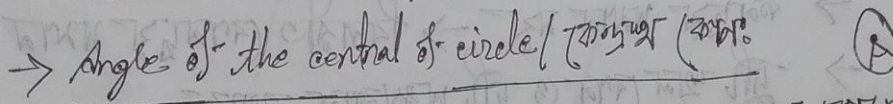 → Angle of the central of circle / কেন্দ্রস্থ কোণঃ A